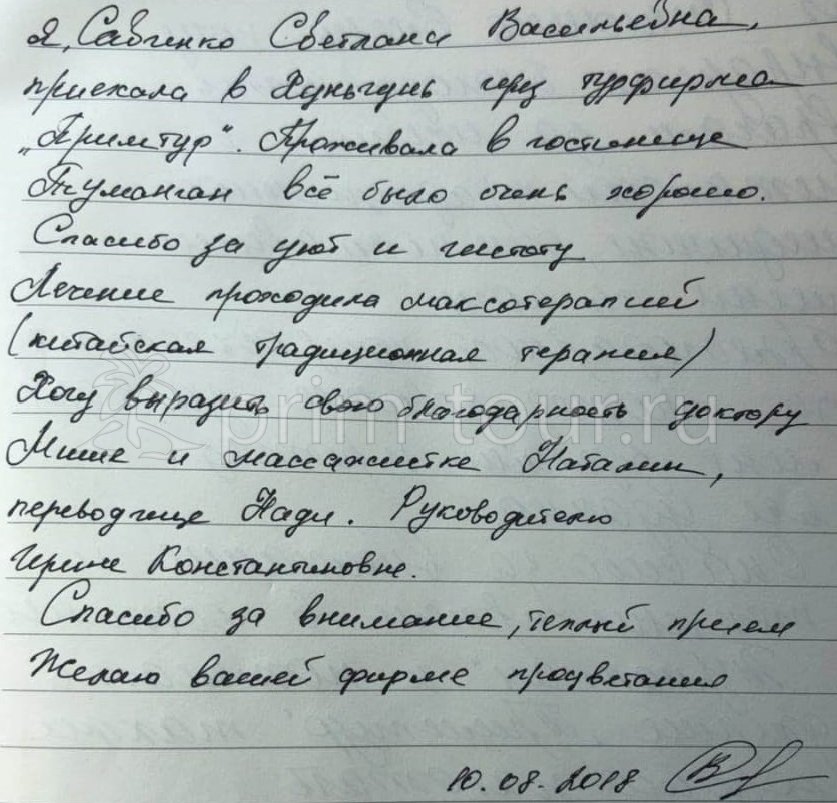 Я, Савченко Светлана Васильевна,
приехала в Хуньчунь через турфирма
„Примтур“. Проживала в гостинице
Тумангган всё было очень хорошо.
Спасибо за уют и чистоту
Лечение проходила максотерапией
(китайская традиционная терапия)
Хочу выразить свою благодарность доктору
Мише и массажистке Наталии,
переводчице Нади. Руководителю
Ирине Константиновне.
Спасибо за внимание, теплый прием
Желаю вашей фирме процветания
10.08.2018
prim-tour.ru